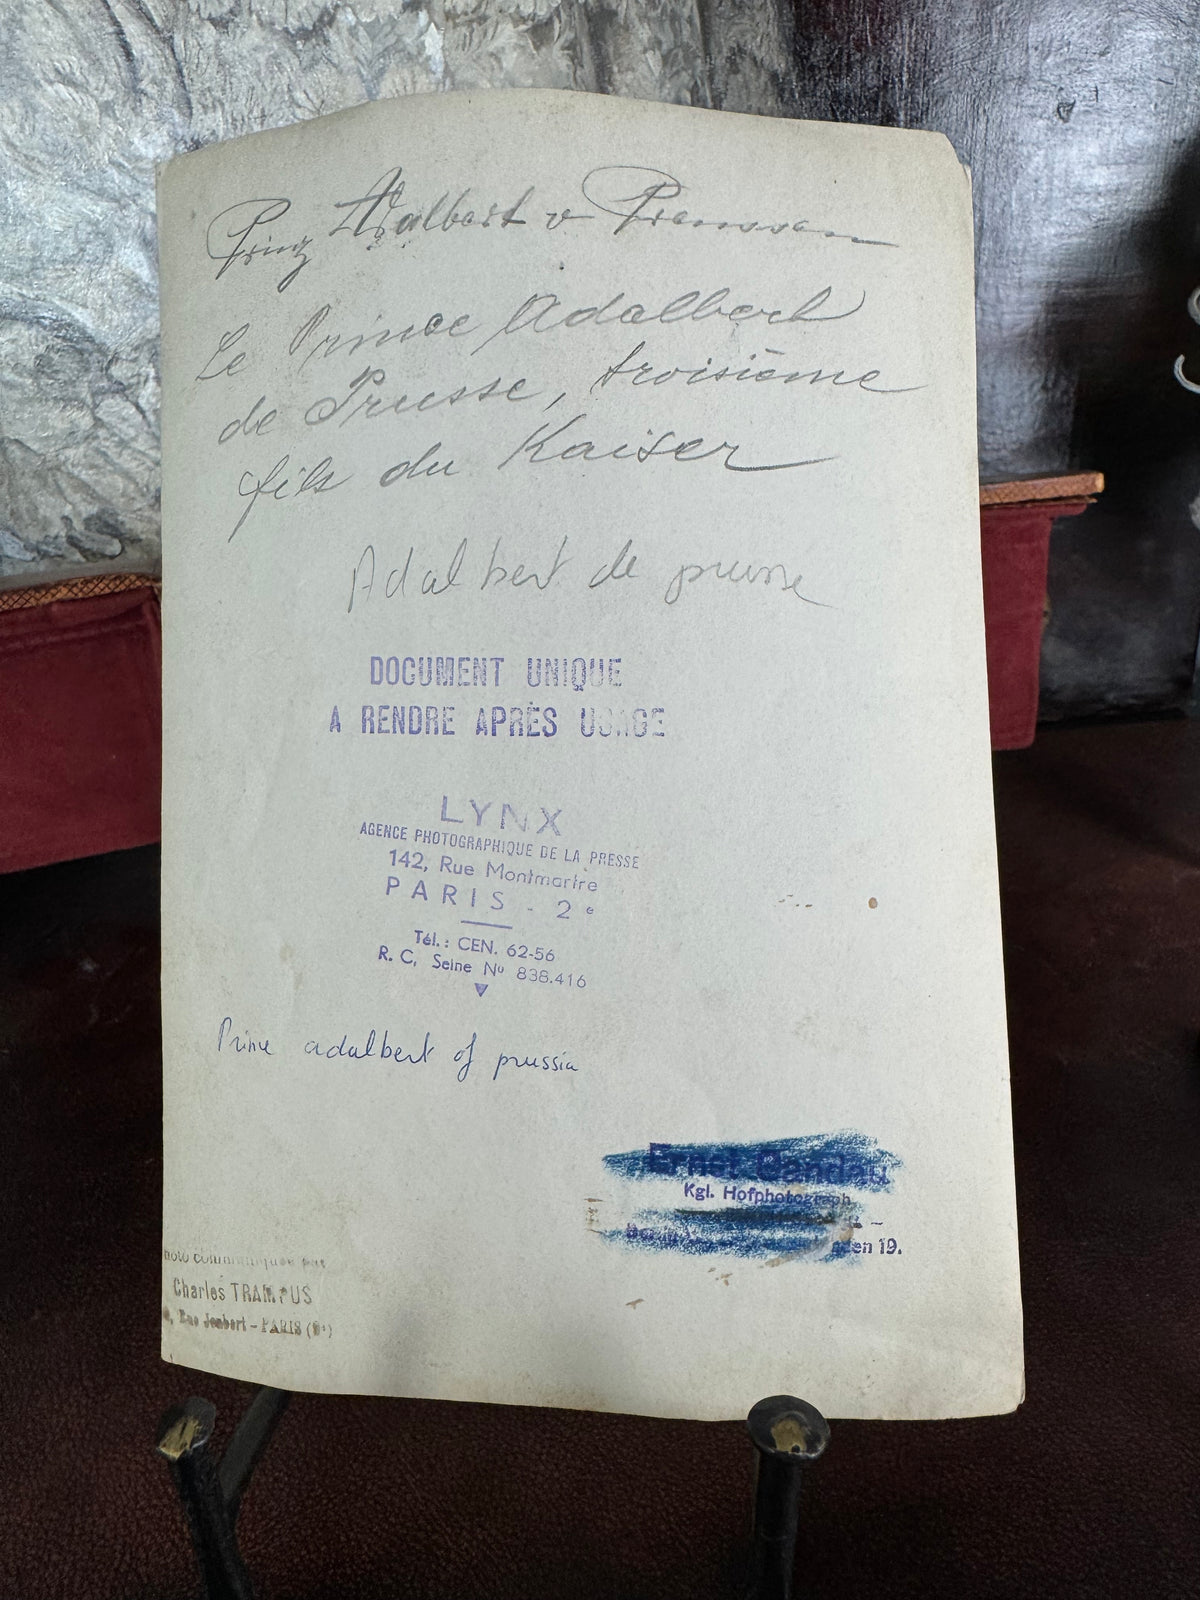 Prinz Adalbert v Preussen
Le Prince Adalbert
de Prusse, troisième
fils du Kaiser
Adalbert de prusse
DOCUMENT UNIQUE
A RENDRE APRÈS USAGE
LYNX
AGENCE PHOTOGRAPHIQUE DE LA PRESSE
142, Rue Montmartre
PARIS - 2e
Tél.: CEN. 62-56
R. C. Seine No 838.416
Prince adalbert of prussia
Ernst Sandau
Kgl. Hofphotograph
19.
Charles TRAMPUS
Rue Joubert - PARIS (9e)